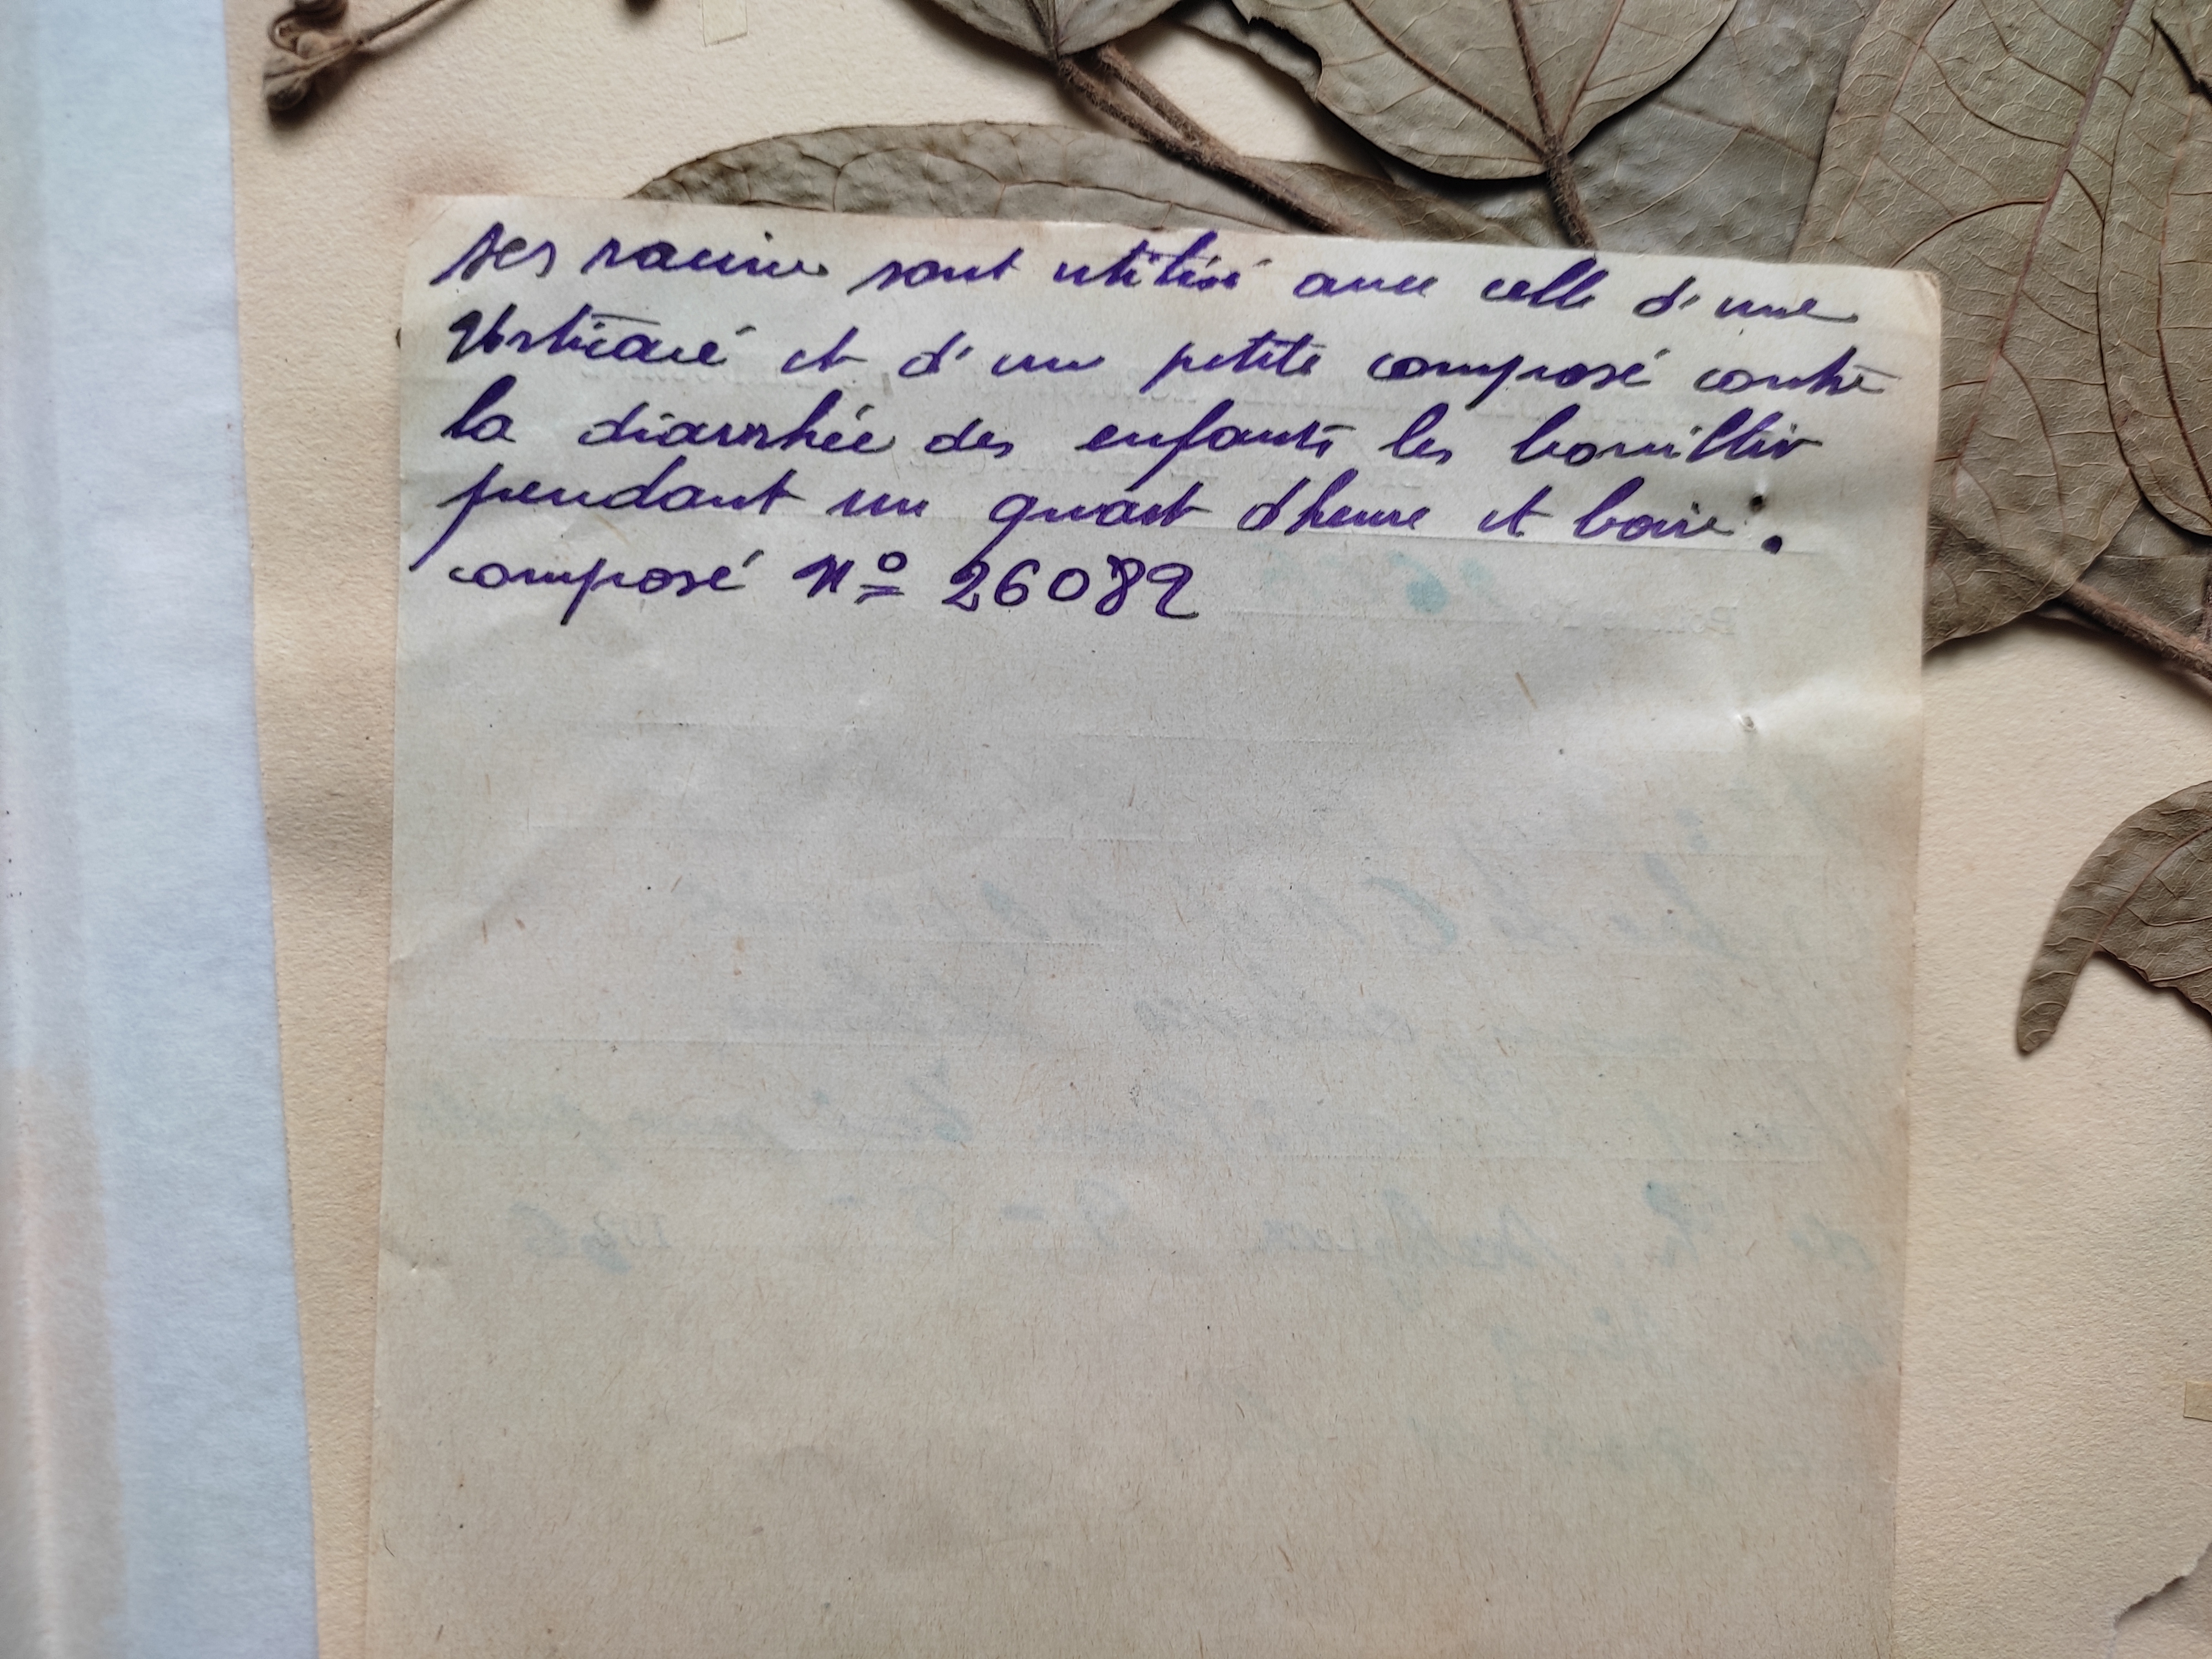 ses racines sont utilisé avec celle d'une
Urticacé et d'une petite composé contre
la diarrhée des enfants les bouillir
pendant un quart d'heure et boire.
composé Nº 26082